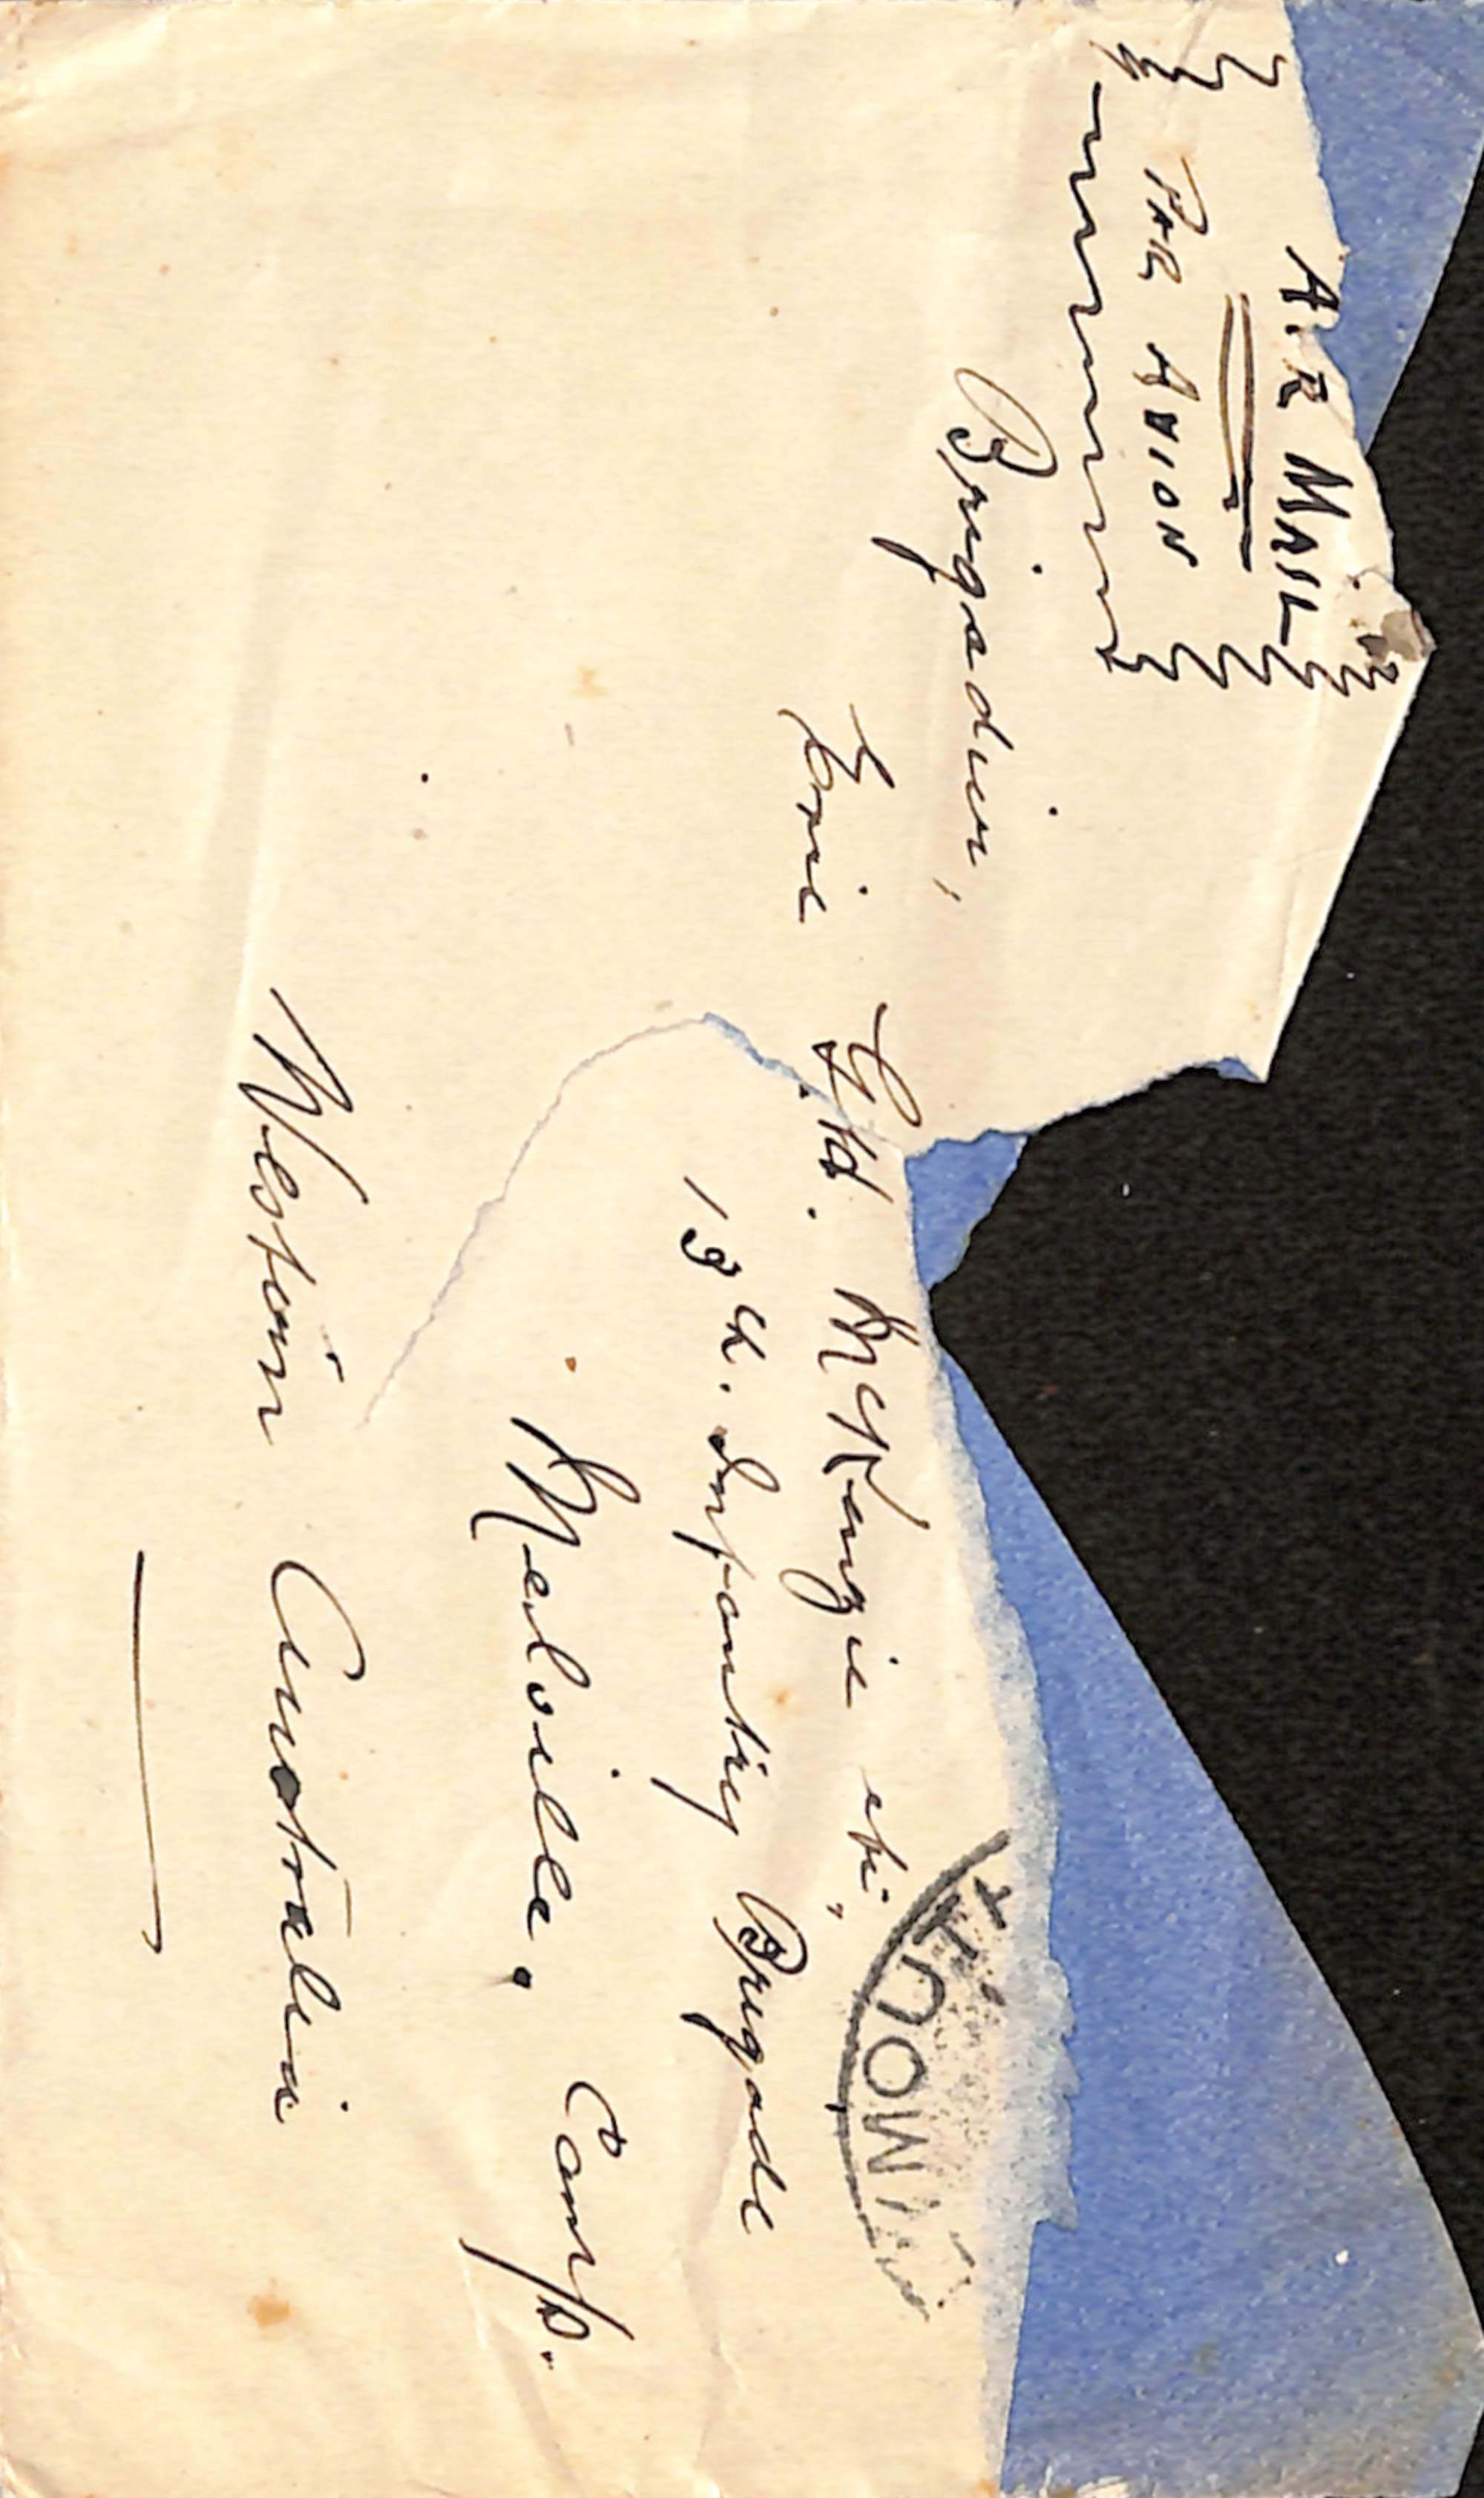 AIR MAIL
PAR AVION
Brigadier,
Eric G.H. McKenzie etc,
13th. Infantry Brigade
Melville, Camp.
Western Australia